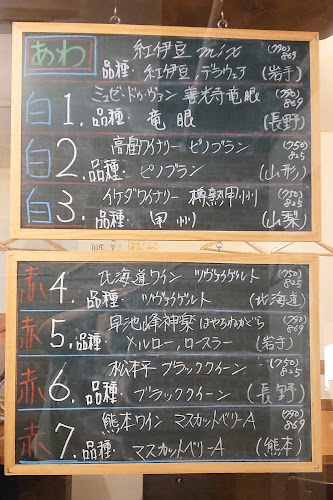 あわ! 紅伊豆 mix (790) 869
品種・紅伊豆、デラウェア (岩手)
白1. ミュゼ・ドゥ・ヴァン 善光寺竜眼 (790) 869
品種・竜眼 (長野)
白2. 高畠ワイナリー ピノブラン (750) 825
品種・ピノブラン (山形)
白3. イケダワイナリー 樽熟甲州 (750) 825
品種・甲州 (山梨)
赤4. 北海道ワイン ツヴァイゲルト (750) 825
品種・ツヴァイゲルト (北海道)
赤5. 早池峰神楽 はやちねかぐら (790) 869
品種・メルロー、ロースラー (岩手)
赤6. 松本平 ブラッククイーン (750) 825
品種・ブラッククイーン (長野)
赤7. 熊本ワイン マスカットベリーA (790) 869
品種・マスカットベリーA (熊本)